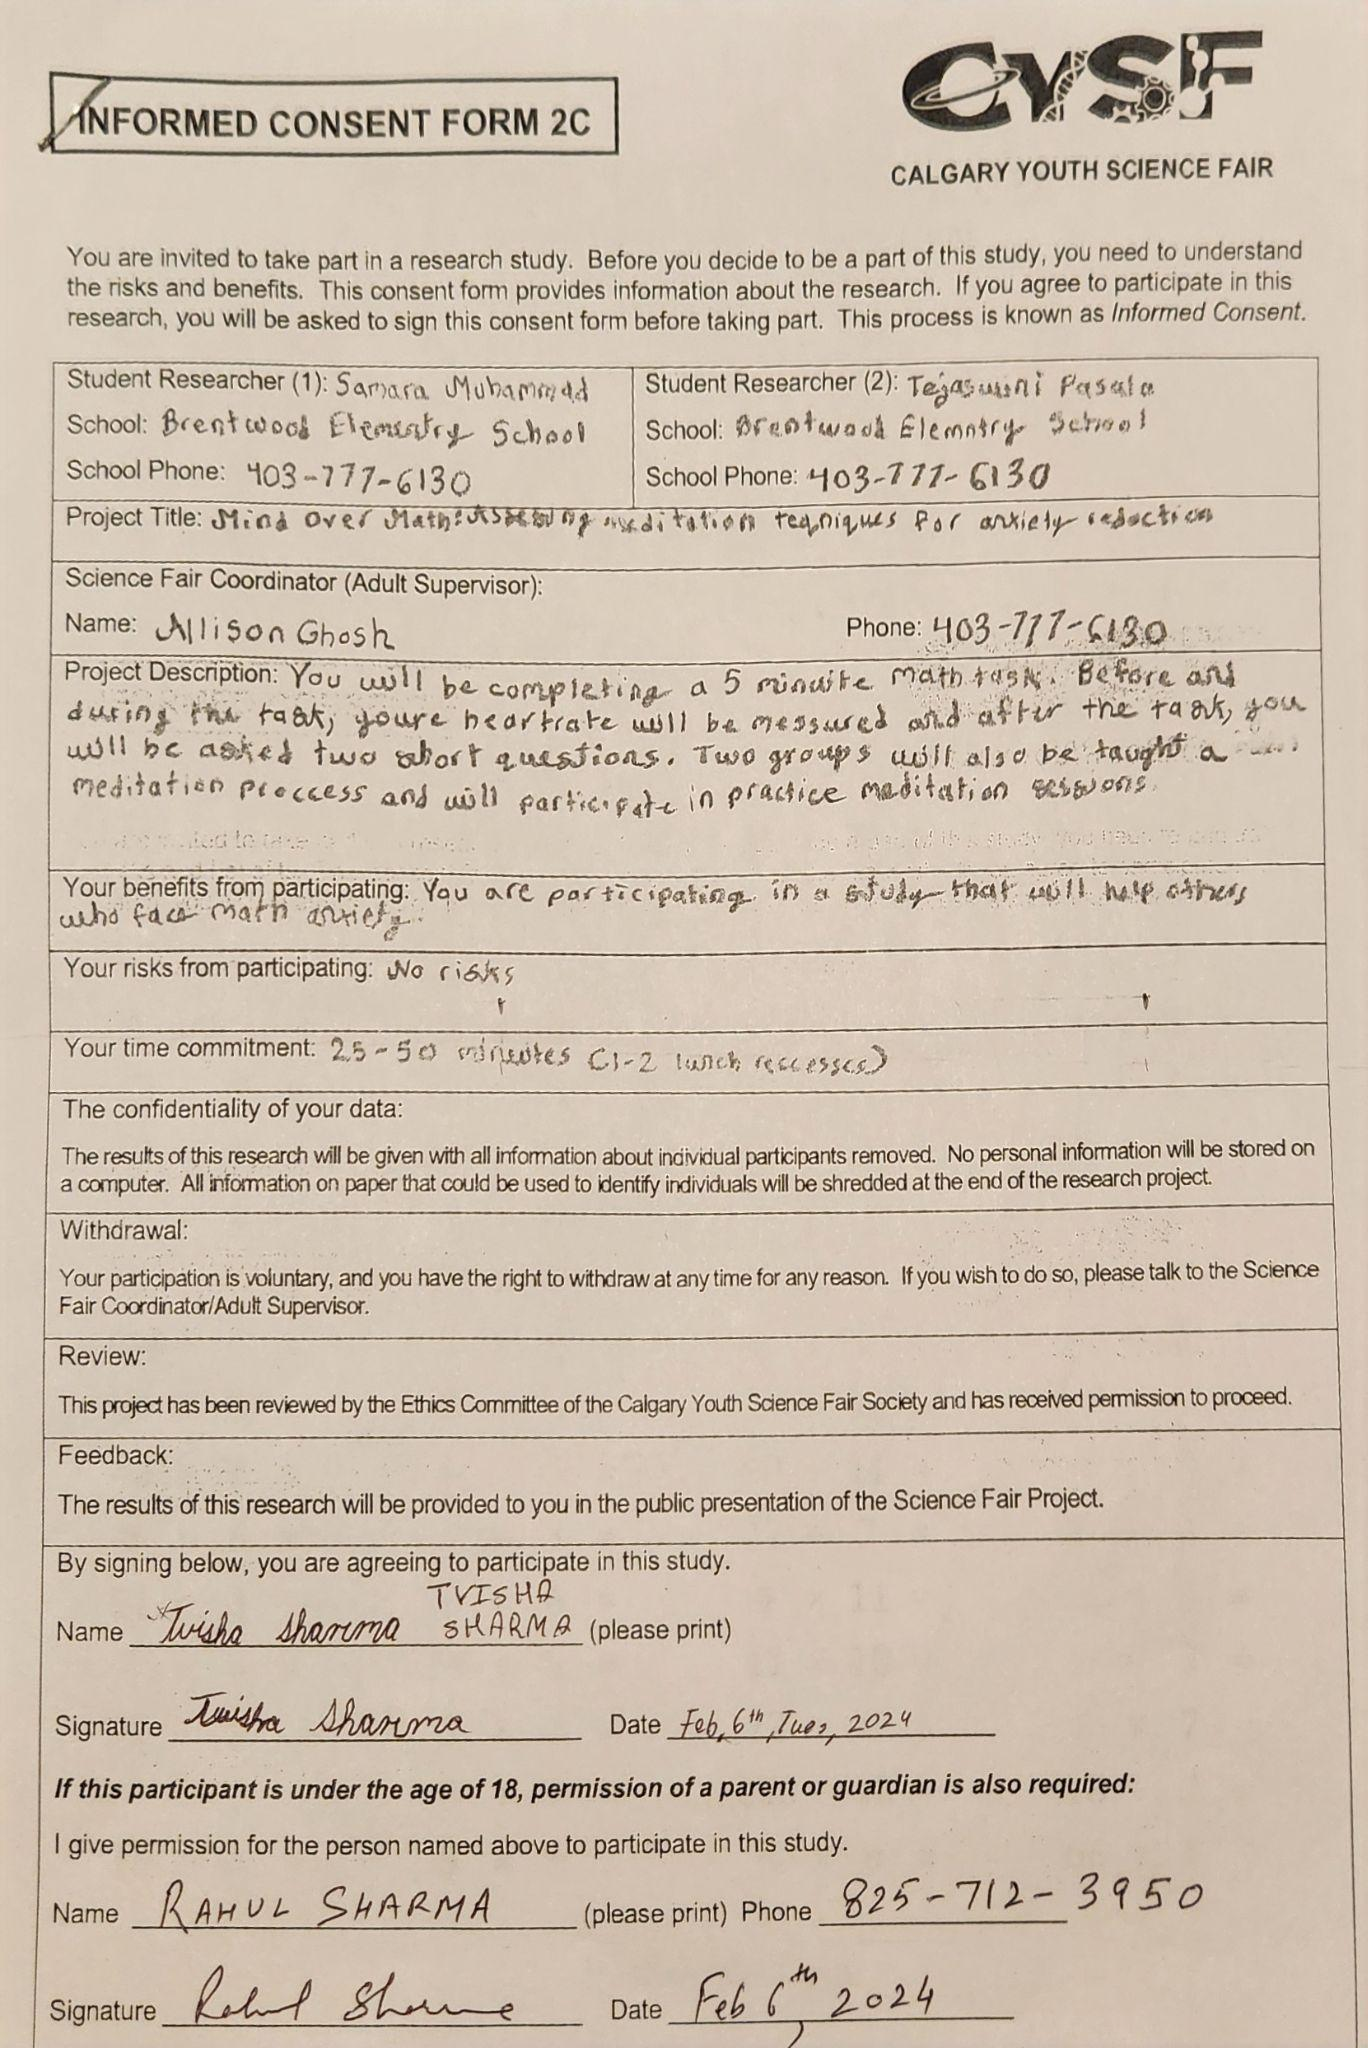 INFORMED CONSENT FORM 2C
CYSF
CALGARY YOUTH SCIENCE FAIR
You are invited to take part in a research study. Before you decide to be a part of this study, you need to understand
the risks and benefits. This consent form provides information about the research. If you agree to participate in this
research, you will be asked to sign this consent form before taking part. This process is known as Informed Consent.
Student Researcher (1): Samara Muhammad
School: Brentwood Elementry School
School Phone: 403-777-6130
Student Researcher (2): Tejaswini Pasala
School: Brentwood Elemntry School
School Phone: 403-777-6130
Project Title: Mind Over Math: Assessing meditation teqniques for anxiety reduction
Science Fair Coordinator (Adult Supervisor):
Name: Allison Ghosh Phone: 403-777-6130
Project Description: You will be completing a 5 minuite math task. Before and
during the task, youre heartrate will be messured and after the task, you
will be asked two short questions. Two groups will also be taught a
meditation proccess and will participate in practice meditation sessions.
Your benefits from participating: You are participating in a study that will help others
who face math anxiety.
Your risks from participating: No risks
Your time commitment: 25-50 minuutes (1-2 lunch reccesses)
The confidentiality of your data:
The results of this research will be given with all information about individual participants removed. No personal information will be stored on
a computer. All information on paper that could be used to identify individuals will be shredded at the end of the research project.
Withdrawal:
Your participation is voluntary, and you have the right to withdraw at any time for any reason. If you wish to do so, please talk to the Science
Fair Coordinator/Adult Supervisor.
Review:
This project has been reviewed by the Ethics Committee of the Calgary Youth Science Fair Society and has received permission to proceed.
Feedback:
The results of this research will be provided to you in the public presentation of the Science Fair Project.
By signing below, you are agreeing to participate in this study.
TVISHA
Name Tvisha Sharma SHARMA (please print)
Signature Tvisha Sharma Date Feb, 6th, Tues, 2024
If this participant is under the age of 18, permission of a parent or guardian is also required:
I give permission for the person named above to participate in this study.
Name RAHUL SHARMA (please print) Phone 825-712-3950
Signature Rahul Sharma Date Feb 6th, 2024